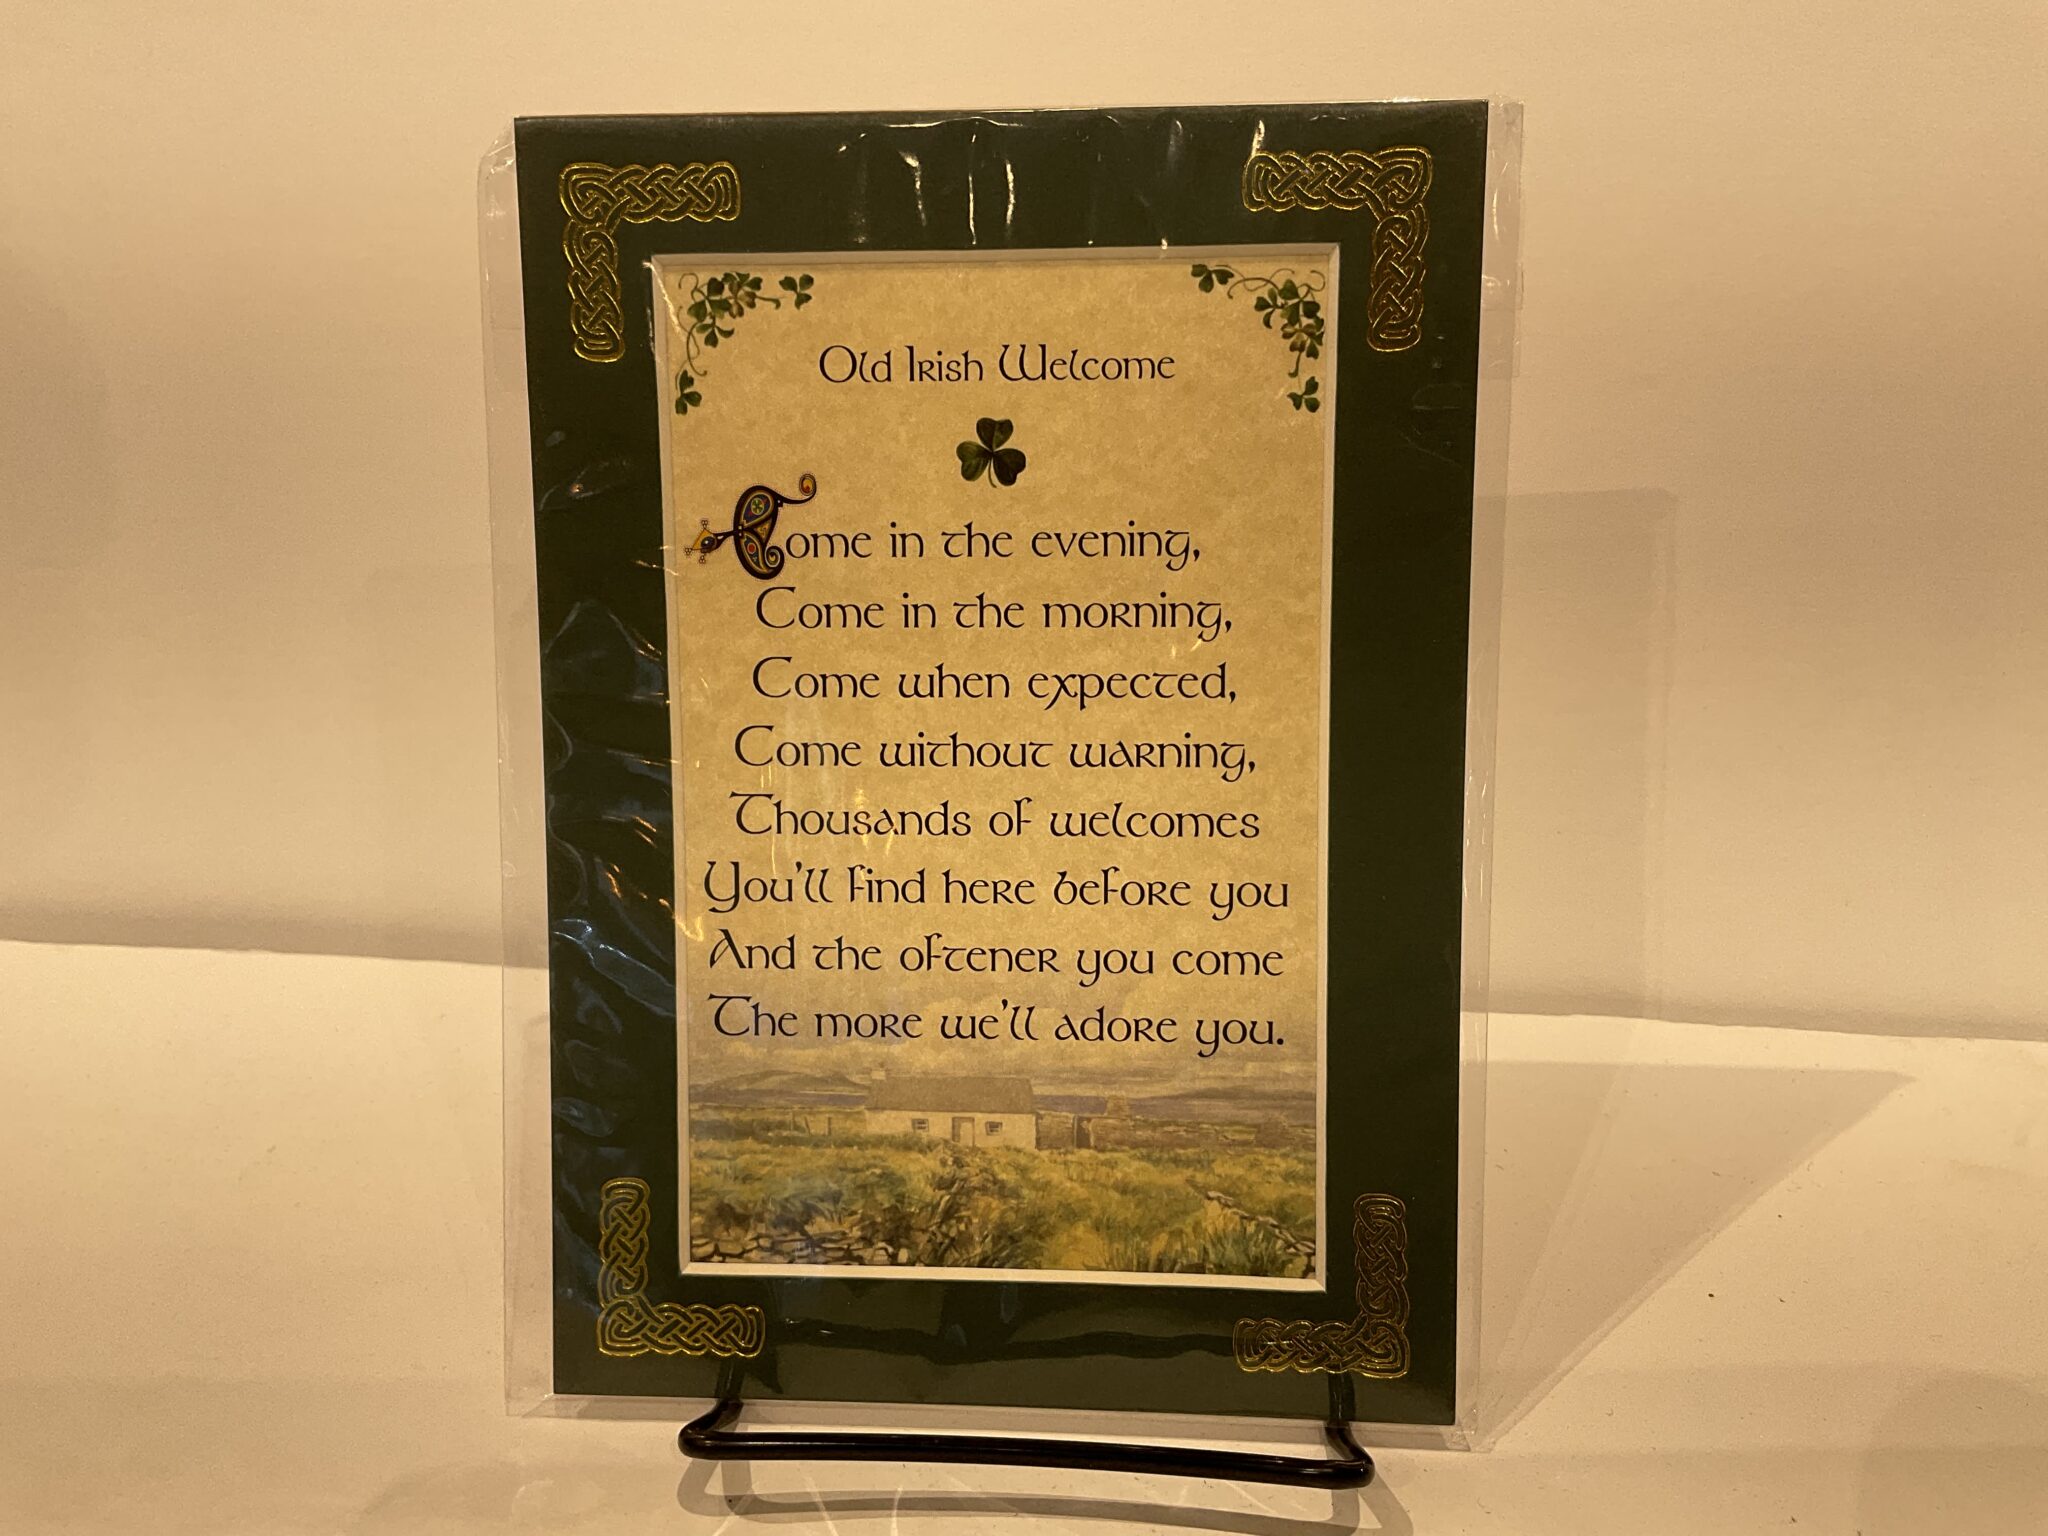 Old Irish Welcome
Come in the evening,
Come in the morning,
Come when expected,
Come without warning,
Thousands of welcomes
You'll find here before you
And the oftener you come
The more we'll adore you.